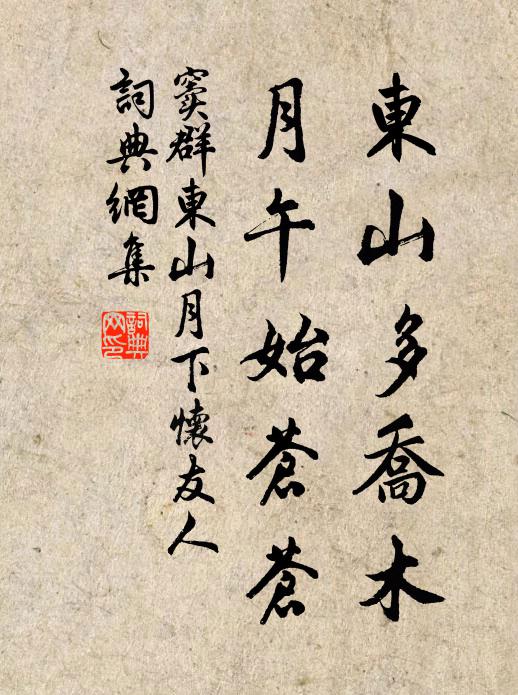 東山多喬木
月午始蒼蒼
竇群東山月下懷友人
詞典網集
詞典網印